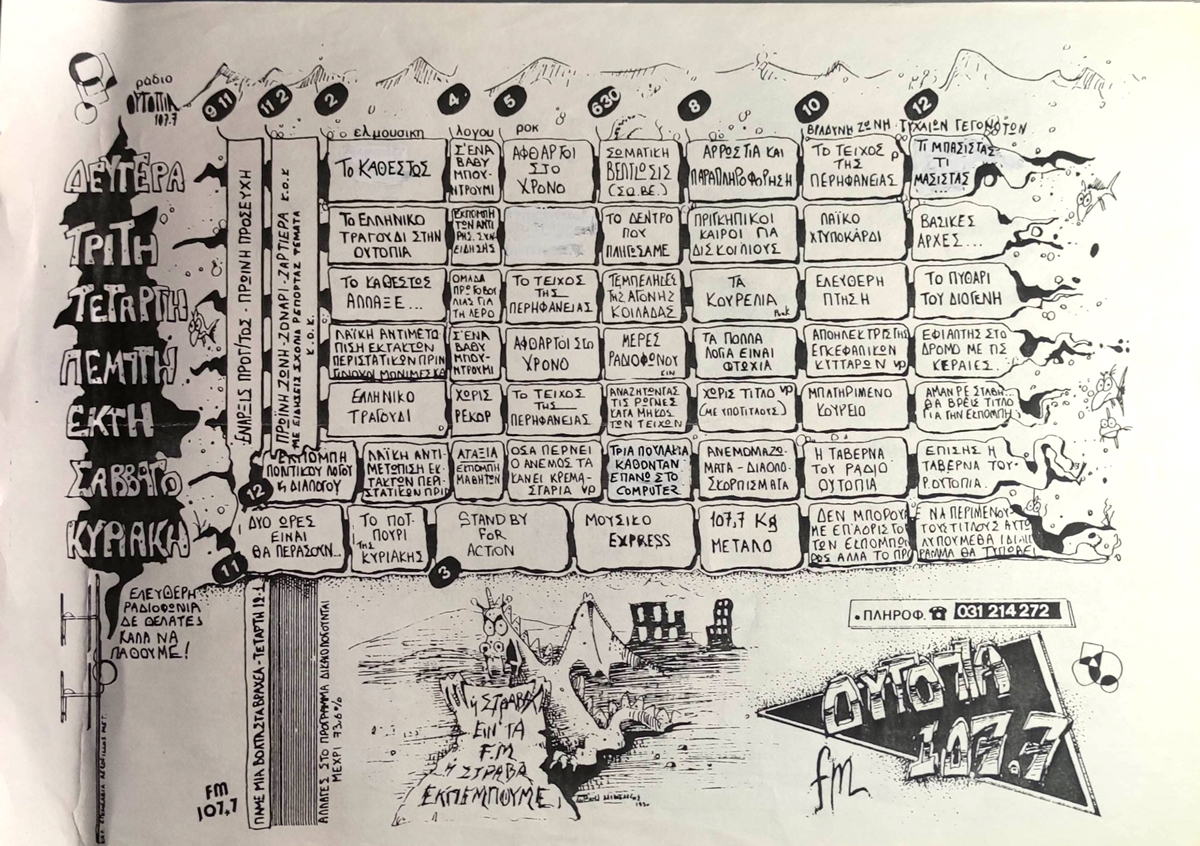 ράδιο
ΟΥΤΟΠΙΑ
107.7
9 11
11 2
2
4
5
6 30
8
10
12
ελ.μουσικη
λογου
ροκ
ΒΡΑΔΥΝΗ ΖΩΝΗ ΤΥΧΑΙΩΝ ΓΕΓΟΝΟΤΩΝ
ΕΝΑΡΞΙΣ ΠΡΟΓ/ΤΟΣ - ΠΡΩΙΝΗ ΠΡΟΣΕΥΧΗ
ΠΡΩΪΝΗ ΖΩΝΗ-ΖΩΝΑΡΙ-ΖΑΡΤΙΕΡΑ Κ.Ο.Κ
ΜΕ ΕΙΔΗΣΕΙΣ ΣΧΟΛΙΑ ΡΕΠΟΡΤΑΖ ΘΕΜΑΤΑ
Κ.Ο.Κ.
ΔΕΥΤΕΡΑ
ΤΟ ΚΑΘΕΣΤΩΣ
Σ'ΕΝΑ
ΒΑΒΥ
ΜΠΟΥ-
ΝΤΡΟΥΜΙ
ΑΦΘΑΡΤΟΙ
ΣΤΟ
ΧΡΟΝΟ
ΣΩΜΑΤΙΚΗ
ΒΕΛΤΙΩΣΙΣ
(ΣΩ.ΒΕ.)
ΑΡΡΩΣΤΙΑ ΚΑΙ
ΠΑΡΑΠΛΗΡΟΦΟΡΗΣΗ
ΤΟ ΤΕΙΧΟΣ
ΤΗΣ
ΠΕΡΗΦΑΝΕΙΑΣ
ΤΙ ΜΠΑΣΙΣΤΑΣ
ΤΙ
ΜΑΣΙΣΤΑΣ
...
ΤΡΙΤΗ
ΤΟ ΕΛΛΗΝΙΚΟ
ΤΡΑΓΟΥΔΙ ΣΤΗΝ
ΟΥΤΟΠΙΑ
ΕΚΠΟΜΠΗ
ΤΩΝ ΑΝΤΙ
ΡΗΣ. ΣΥΝ
ΕΙΔΗΣΗΣ
ΤΟ ΔΕΝΤΡΟ
ΠΟΥ
ΠΛΗΓΩΣΑΜΕ
ΠΡΙΓΚΗΠΙΚΟΙ
ΚΑΙΡΟΙ ΓΙΑ
ΔΙΣΚΟΙΠΛΙΟΥΣ
ΛΑΪΚΟ
ΧΤΥΠΟΚΑΡΔΙ
ΒΑΣΙΚΕΣ
ΑΡΧΕΣ...
ΤΕΤΑΡΤΗ
ΤΟ ΚΑΘΕΣΤΩΣ
ΑΛΛΑΞΕ...
ΟΜΑΔΑ
ΠΡΩΤΟΒΟΥ
ΛΙΑΣ ΓΙΑ
ΤΗ ΛΕΡΟ
ΤΟ ΤΕΙΧΟΣ
ΤΗΣ
ΠΕΡΗΦΑΝΕΙΑΣ
ΤΕΜΠΕΛΗΔΕΣ
ΤΗΣ ΑΓΟΝΗΣ
ΚΟΙΛΑΔΑΣ
ΤΑ
ΚΟΥΡΕΛΙΑ
Punk
ΕΛΕΥΘΕΡΗ
ΠΤΗΣΗ
ΤΟ ΠΥΘΑΡΙ
ΤΟΥ ΔΙΟΓΕΝΗ
ΠΕΜΠΤΗ
ΛΑΪΚΗ ΑΝΤΙΜΕΤΩ
ΠΙΣΗ ΕΚΤΑΚΤΩΝ
ΠΕΡΙΣΤΑΤΙΚΩΝ ΠΡΙΝ
ΓΙΝΟΥΝ ΜΟΝΙΜΕΣ ΚΑ
Σ'ΕΝΑ
ΒΑΒΥ
ΜΠΟΥ-
ΝΤΡΟΥΜΙ
ΑΦΘΑΡΤΟΙ ΣΤΟ
ΧΡΟΝΟ
ΜΕΡΕΣ
ΡΑΔΙΟΦΩΝΟΥ
ΕΙΝ
ΤΑ ΠΟΛΛΑ
ΛΟΓΙΑ ΕΙΝΑΙ
ΦΤΩΧΙΑ
ΑΠΟΗΛΕΚΤΡΙΣΤΗΣ
ΕΓΚΕΦΑΛΙΚΩΝ
ΚΥΤΤΑΡΩΝ
ΕΦΙΑΛΤΗΣ ΣΤΟ
ΔΡΟΜΟ ΜΕ ΤΙΣ
ΚΕΡΑΙΕΣ...
ΕΚΤΗ
ΕΛΛΗΝΙΚΟ
ΤΡΑΓΟΥΔΙ
ΧΩΡΙΣ
ΡΕΚΟΡ
ΤΟ ΤΕΙΧΟΣ
ΤΗΣ
ΠΕΡΗΦΑΝΕΙΑΣ
ΑΝΑΖΗΤΩΝΤΑΣ
ΤΙΣ ΡΩΓΜΕΣ
ΚΑΤΑ ΜΗΚΟΣ
ΤΩΝ ΤΕΙΧΩΝ
ΧΩΡΙΣ ΤΙΤΛΟ
(ΜΕ ΥΠΟΤΙΤΛΟΥΣ)
ΜΠΛΑΤΗΡΙΜΕΝΟ
ΚΟΥΡΕΙΟ
ΑΜΑΝ ΡΕ ΣΤΑΘΗ...
ΘΑ ΒΡΕΙΣ ΤΙΤΛΟ
ΓΙΑ ΤΗΝ ΕΚΠΟΜΠΗ;
ΣΑΒΒΑΤΟ
ΕΚΠΟΜΠΗ
ΠΟΛΙΤΙΚΟΥ ΛΟΓΟΥ
Ή ΔΙΑΛΟΓΟΥ
12
ΛΑΪΚΗ ΑΝΤΙ-
ΜΕΤΩΠΙΣΗ ΕΚ-
ΤΑΚΤΩΝ ΠΕΡΙ-
ΣΤΑΤΙΚΩΝ ΠΡΙΝ
ΑΤΑΞΙΑ
ΕΚΠΟΜΠΗ
ΜΑΘΗΤΩΝ
ΟΣΑ ΠΕΡΝΕΙ
Ο ΑΝΕΜΟΣ ΤΑ
ΚΑΝΕΙ ΚΡΕΜΑ-
ΣΤΑΡΙΑ
ΤΡΙΑ ΠΟΥΛΑΚΙΑ
ΚΑΘΟΝΤΑΝ
ΕΠΑΝΩ ΣΤΟ
COMPUTER
ΑΝΕΜΟΜΑΖΩ-
ΜΑΤΑ-ΔΙΑΟΛΟ-
ΣΚΟΡΠΙΣΜΑΤΑ
Η ΤΑΒΕΡΝΑ
ΤΟΥ ΡΑΔΙΟ
ΟΥΤΟΠΙΑ
ΕΠΙΣΗΣ Η
ΤΑΒΕΡΝΑ ΤΟΥ
Ρ.ΟΥΤΟΠΙΑ.
ΚΥΡΙΑΚΗ
ΔΥΟ ΩΡΕΣ
ΕΙΝΑΙ
ΘΑ ΠΕΡΑΣΟΥΝ...
11
ΤΟ ΠΟΤ-
ΠΟΥΡΙ
ΤΗΣ
ΚΥΡΙΑΚΗΣ
3
STAND BY
FOR
ACTION
ΜΟΥΣΙΚΟ
EXPRESS
107,7 Kg
ΜΕΤΑΛΟ
ΔΕΝ ΜΠΟΡΟΥ
ΜΕ ΕΠ'ΑΟΡΙΣΤΟ
ΤΩΝ ΕΚΠΟΜΠΩ
ΡΟΣ ΑΛΛΑ ΤΟ ΠΡΟ
Ε ΝΑ ΠΕΡΙΜΕΝΟΥ
ΤΟΥΣ ΤΙΤΛΟΥΣ ΑΥΤΩ
ΛΥΠΟΥΜΕΘΑ
ΡΑΜΜΑ ΘΑ ΤΥΠΩΘΕΙ
ΕΛΕΥΘΕΡΗ
ΡΑΔΙΟΦΩΝΙΑ
ΔΕ ΘΕΛΑΤΕ
ΚΑΛΑ ΝΑ
ΠΑΘΟΥΜΕ!
FM
107,7
ΠΑΜΕ ΜΙΑ ΒΟΛΤΑ ΣΤΑ ΒΡΑΧΕΑ-ΤΕΤΑΡΤΗ 12-1
ΑΛΛΑΓΕΣ ΣΤΟ ΠΡΟΓΡΑΜΜΑ ΔΙΚΑΙΟΛΟΓΟΥΝΤΑΙ
ΜΕΧΡΙ 73,6%
Ή ΣΤΡΑΒΑ
ΕΙΝ ΤΑ
F.M.
Ή ΣΤΡΑΒΑ
ΕΚΠΕΜΠΟΥΜΕ
• ΠΛΗΡΟΦ. ☎ 031 214 272
ΟΥΤΟΠΙΑ
107.7
fm